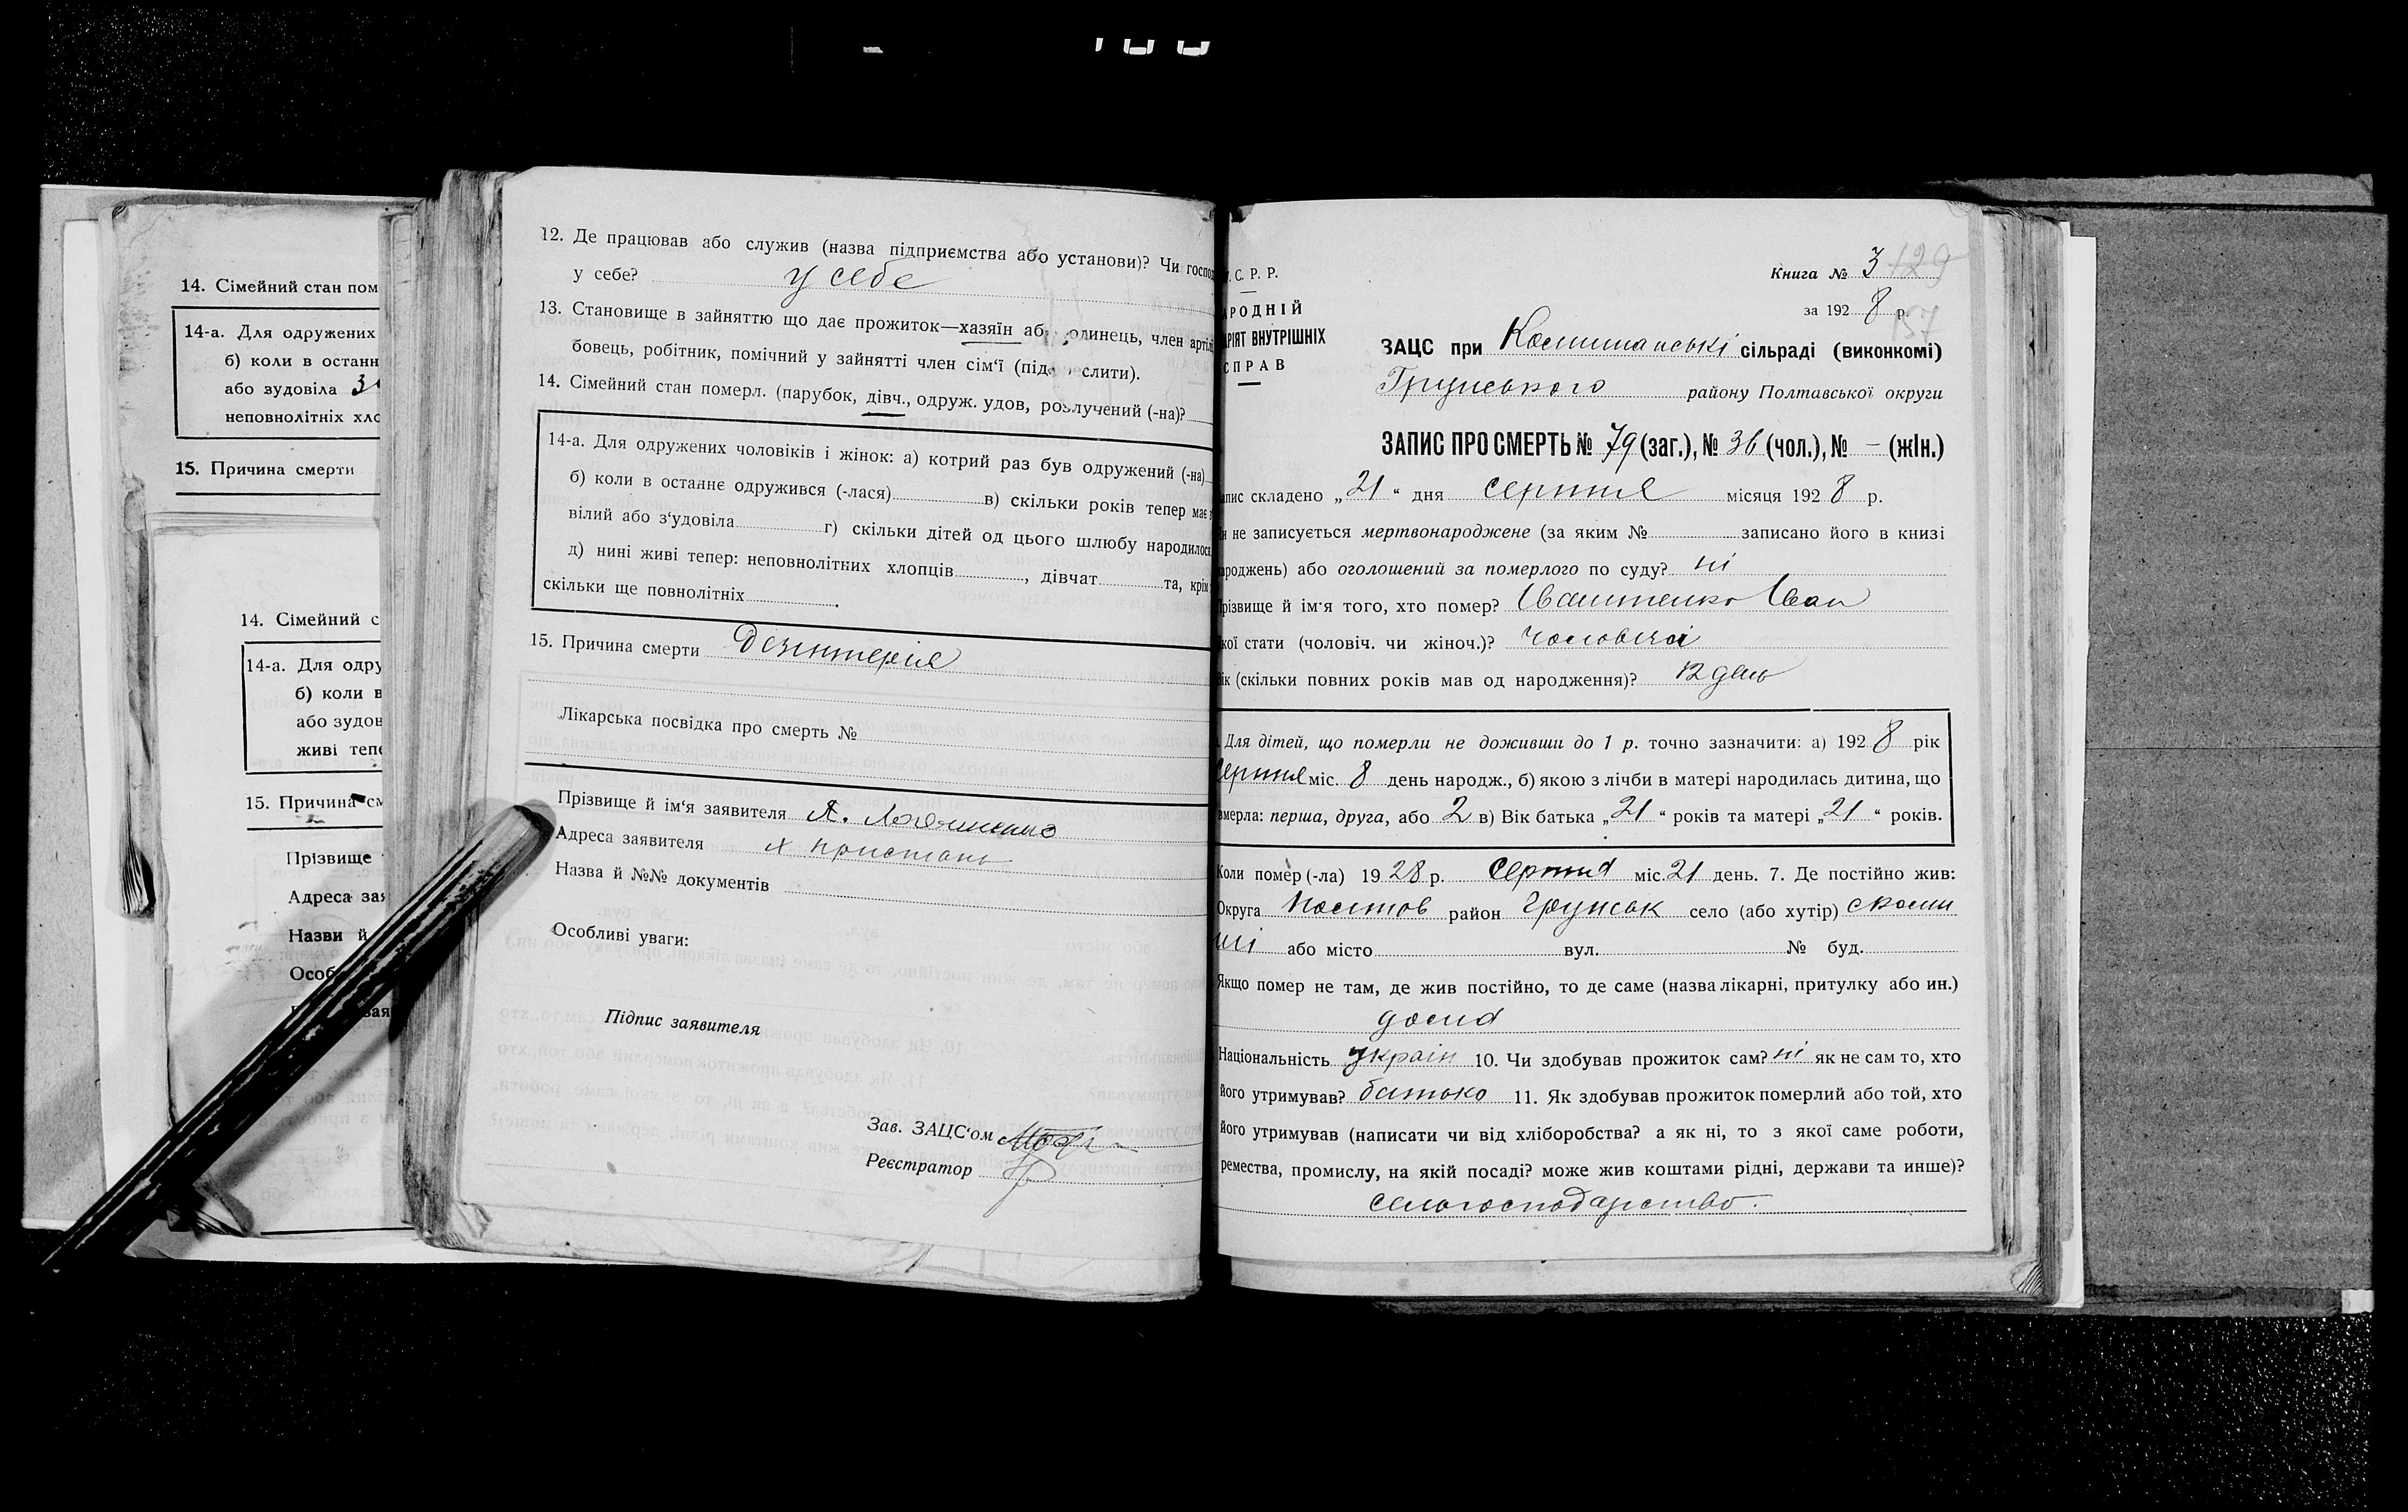 14. Сімейний стан пом
14-а. Для одружених
б) коли в останн
або зудовіла
неповнолітніх хло
15. Причина смерти
14. Сімейний с
14-а. Для одру
б) коли в
або зудов
живі тепе
15. Причина см
Прізвище
Адреса зая
Назви й
Особ
12. Де працював або служив (назва підприємства або установи)? Чи господ
у себе? у себе
13. Становище в зайняттю що дає прожиток—хазяїн або одинець, член артілі
бовець, робітник, помічний у зайнятті член сім'ї (підкреслити).
14. Сімейний стан померл. (парубок, дівч., одруж. удов, розлучений (-на)?
14-а. Для одружених чоловіків і жінок: а) котрий раз був одружений (-на)
б) коли в останнє одружився (-лася) в) скільки років тепер має з
вілий або з'удовіла г) скільки дітей од цього шлюбу народилося
д) нині живі тепер: неповнолітніх хлопців , дівчат та, крім
скільки ще повнолітніх .
15. Причина смерти Дізінтерія
Лікарська посвідка про смерть №
Прізвище й ім'я заявителя
Адреса заявителя х Пристань
Назва й №№ документів
Особливі уваги:
Підпис заявителя
Зав. ЗАЦС'ом
Реєстратор
. С. Р. Р.
АРОДНІЙ
АРІЯТ ВНУТРІШНІХ
СПРАВ
Книга № 3 129
за 192 8 р.
157
ЗАЦС при сільраді (виконкомі)
Грунського району Полтавської округи
ЗАПИС ПРО СМЕРТЬ № 79 (заг.), № 36 (чол.), № — (жін.)
апис складено „21“ дня серпня місяця 192 8 р.
и не записується мертвонароджене (за яким № записано його в книзі
ароджень) або оголошений за померлого по суду? ні
різвище й ім'я того, хто помер? Іван
кої стати (чоловіч. чи жіноч.)? чоловічої
ік (скільки повних років мав од народження)? 12 день
Для дітей, що померли не доживши до 1 р. точно зазначити: а) 192 8 рік
серпня міс. 8 день народж., б) якою з лічби в матері народилась дитина, що
вмерла: перша, друга, або 2 в) Вік батька „21“ років та матері „21“ років.
Коли помер (-ла) 19 28 р. серпня міс. 21 день. 7. Де постійно жив:
Округа район Грунськ село (або хутір)
або місто вул. № буд.
Якщо помер не там, де жив постійно, то де саме (назва лікарні, притулку або ин.)
Національність україн 10. Чи здобував прожиток сам? ні як не сам то, хто
його утримував? батько 11. Як здобував прожиток померлий або той, хто
його утримував (написати чи від хліборобства? а як ні, то з якої саме роботи,
ремества, промислу, на якій посаді? може жив коштами рідні, держави та инше)?
сільгосподарство.